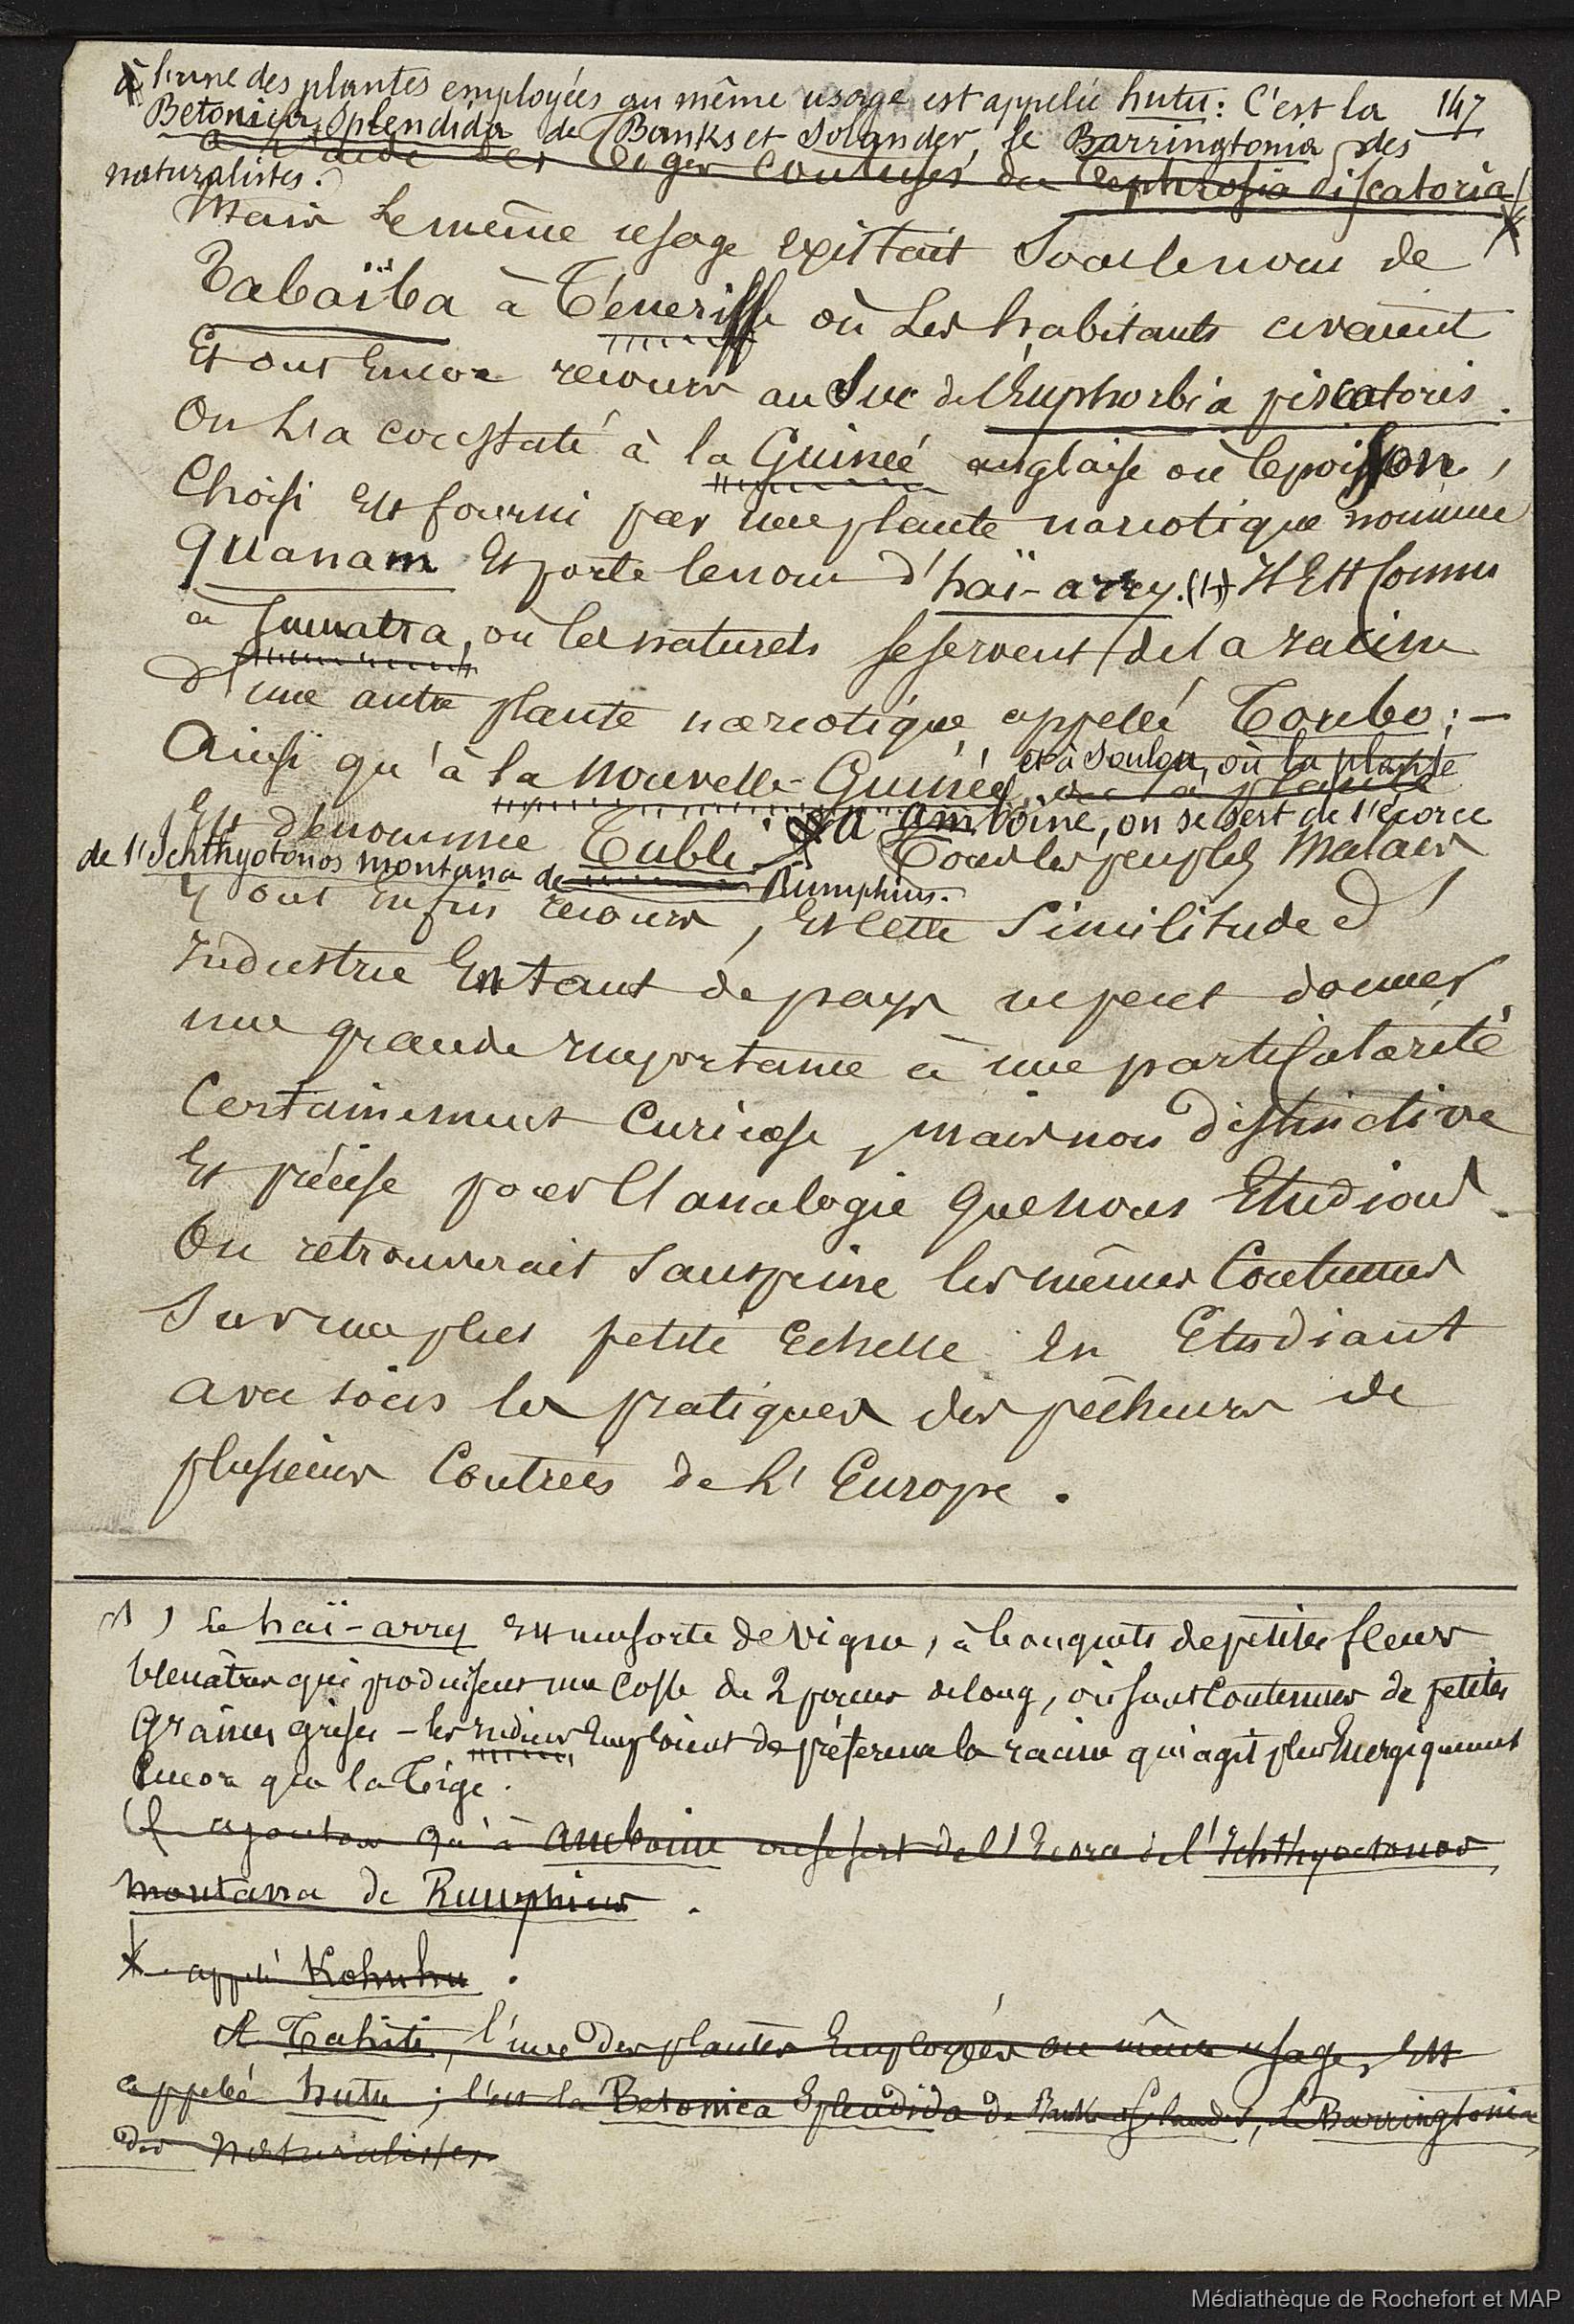 l'une des plantes employées au même usage est appelée hutu : C'est la 147
Betonica Splendida de Banks et Solander, le Barringtonia des
à l'aide des tiges contuses du Tephrosia piscatoria
naturalistes.
Mais le même usage existait sous le nom de
Tabaïba à Ténériffe où les habitants avaient
Et ont Encore recours au Suc de l'Euphorbia piscatoris.
On l'a constaté à la Guinée anglaise où le poison,
Choisi Est fourni par une plante narcotique nommée
Quanam Et porte le nom d'haï-arry. (1) Il Est Connu
à Sumatra, où les naturels se servent de la racine
d'une autre plante narcotique appelée Toubo ; —
Ainsi qu'à la Nouvelle-Guinée, où la plante
et à Soulou, où la plante
Est dénommée Tubli. à Amboine, on se sert de l'écorce
de l'Ichthyotonos montana de Rumphius.
Tous les peuples Malais
y ont Enfin recours, Et cette Similitude d'
Industrie En tant de pays ne peut donner
une grande Importance à une particularité
Certainement Curieuse, mais non distinctive
Et précise pour l'analogie que nous Etudions.
On retrouverait Sans peine les mêmes Coutumes
Sur une plus petite Echelle En Etudiant
avec soin les pratiques des pêcheurs de
plusieurs Contrées de l'Europe.
(1) Le haï-arry Est une sorte de vigne, à bouquets de petites fleurs
bleuâtres qui produisent une Cosse de 2 pouces de long, où sont Contenues de petites
Graines grises - les Indiens Emploient de préférence la racine qui agit plus Energiquement
Encore que la Tige.
ajoutons qu'à Amboine on se sert de l'Ecorce de l'Ichthyoctonos
montana de Rumphius.
appelé Kohuhu.
A Tahiti, l'une des plantes Employées au même usage, Est
appelée hutu ; c'est la Betonica Splendida de Banks & Solander, le Barringtonia
des Naturalistes
Médiathèque de Rochefort et MAP